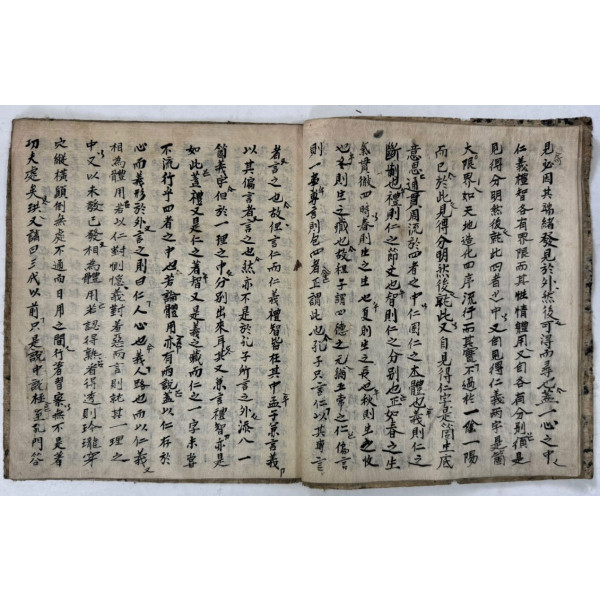 見必因其端緒發見於外然後可得而尋也蓋一心之中
仁義禮智各有界限而其性情體用又自各有分別須是
見得分明然後就此四者之中又自見得仁義兩字是箇
大限界如天地造化四序流行而其實不過於一陰一陽
而已於此見得分明然後就此又自見得仁字是箇生底
意思通貫周流於四者之中仁固仁之本體也義則仁之
斷制也禮則仁之節文也智則仁之分別也正如春之生
氣貫徹四時春則生之生也夏則生之長也秋則生之收
也冬則生之藏也故程子謂四德之元猶五常之仁偏言
則一事專言則包四者正謂此也孔子只言仁以其專言
者言之也故但言仁而仁義禮智皆在其中孟子兼言義
以其偏言者言之也然亦不是於孔子所言之外添入一
箇義字但於一理之中分別出來耳其又兼言禮智亦是
如此蓋禮又是仁之著智又是義之藏而仁之一字未嘗
不流行乎四者之中也若論體用亦有兩說蓋以仁存於
心而義形於外言之則曰仁人心也義人路也而以仁義
相為體用若以仁對惻隱義對羞惡而言則就其一理之
中又以未發已發相為體用若認得熟看得透則玲瓏穿
穴縱橫顛倒無處不通而日用之間行著習察無不是著
功夫處矣珙又請曰三代以前只是說中說極至孔門答